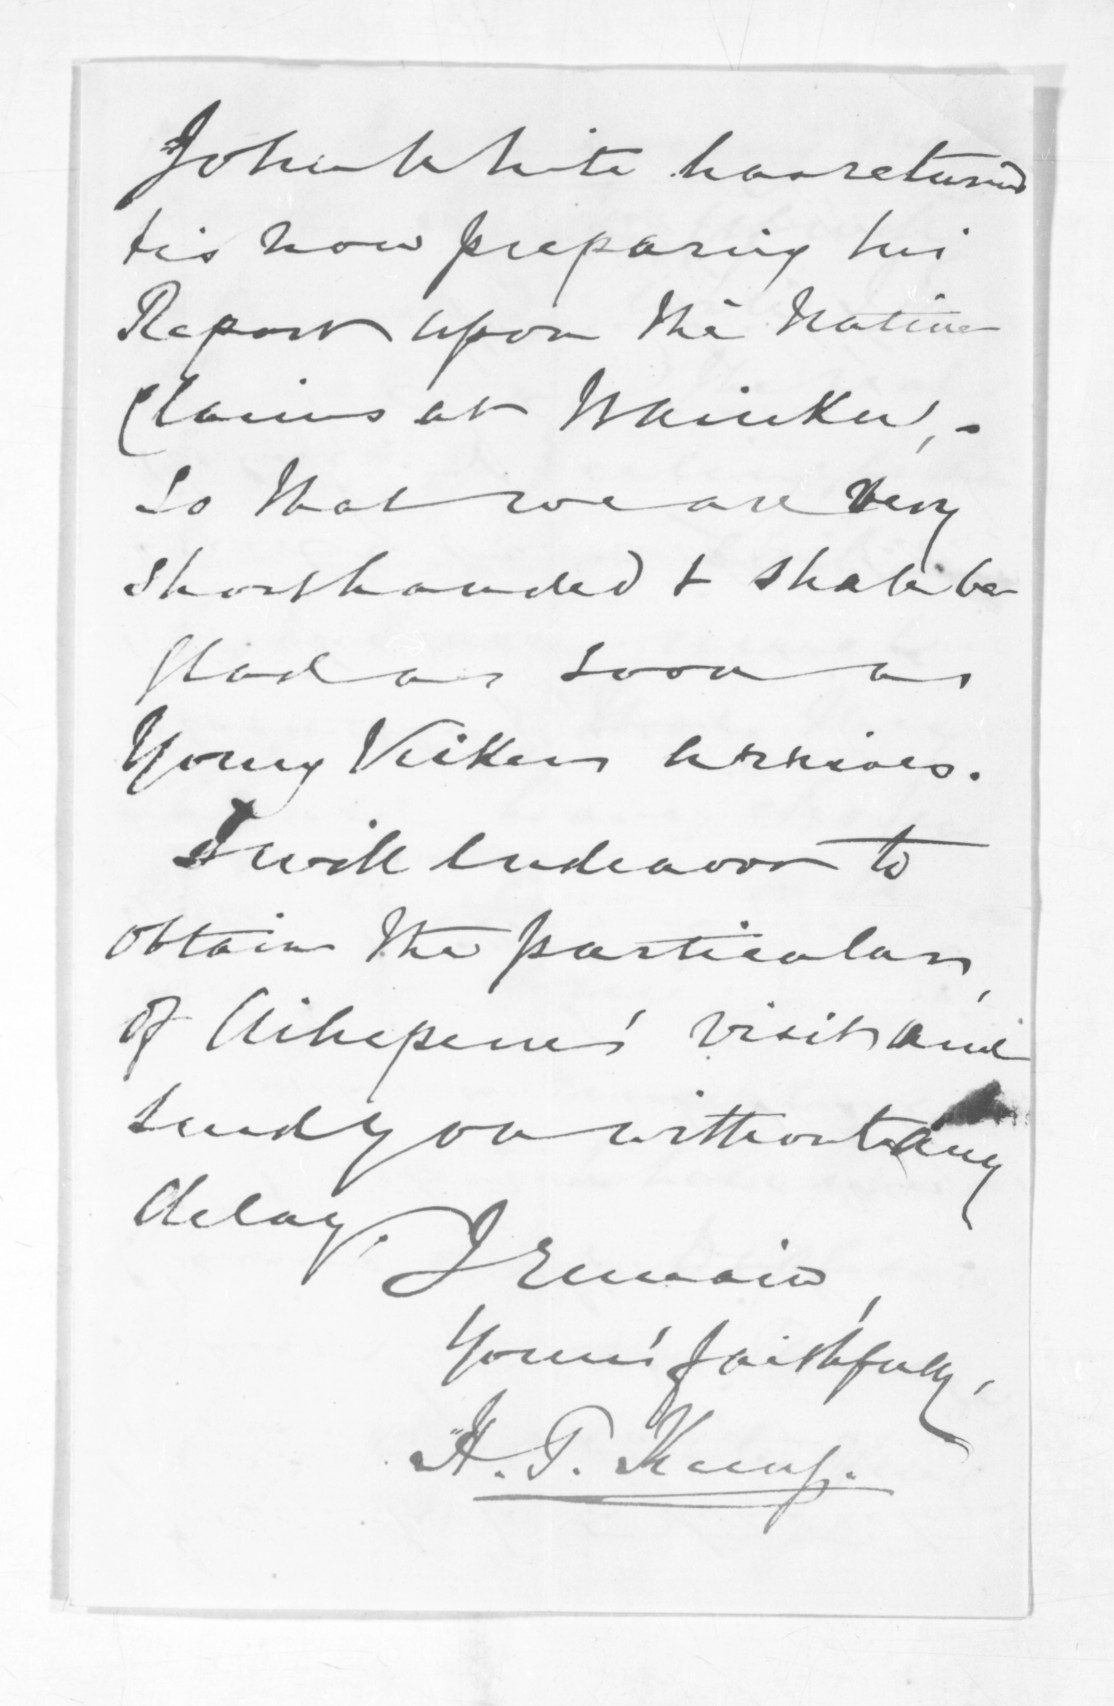 John White has returned
& is now preparing his
Report upon the Native
Claims at Waiuku, -
So that we are very
shorthanded & shall be
glad as soon as
Young arrives.
I will endeavor to
obtain the particulars,
of Aihepene's visit and
send you without any
delay,
I remain,
Your's faithfully,
H. T. Kemp.